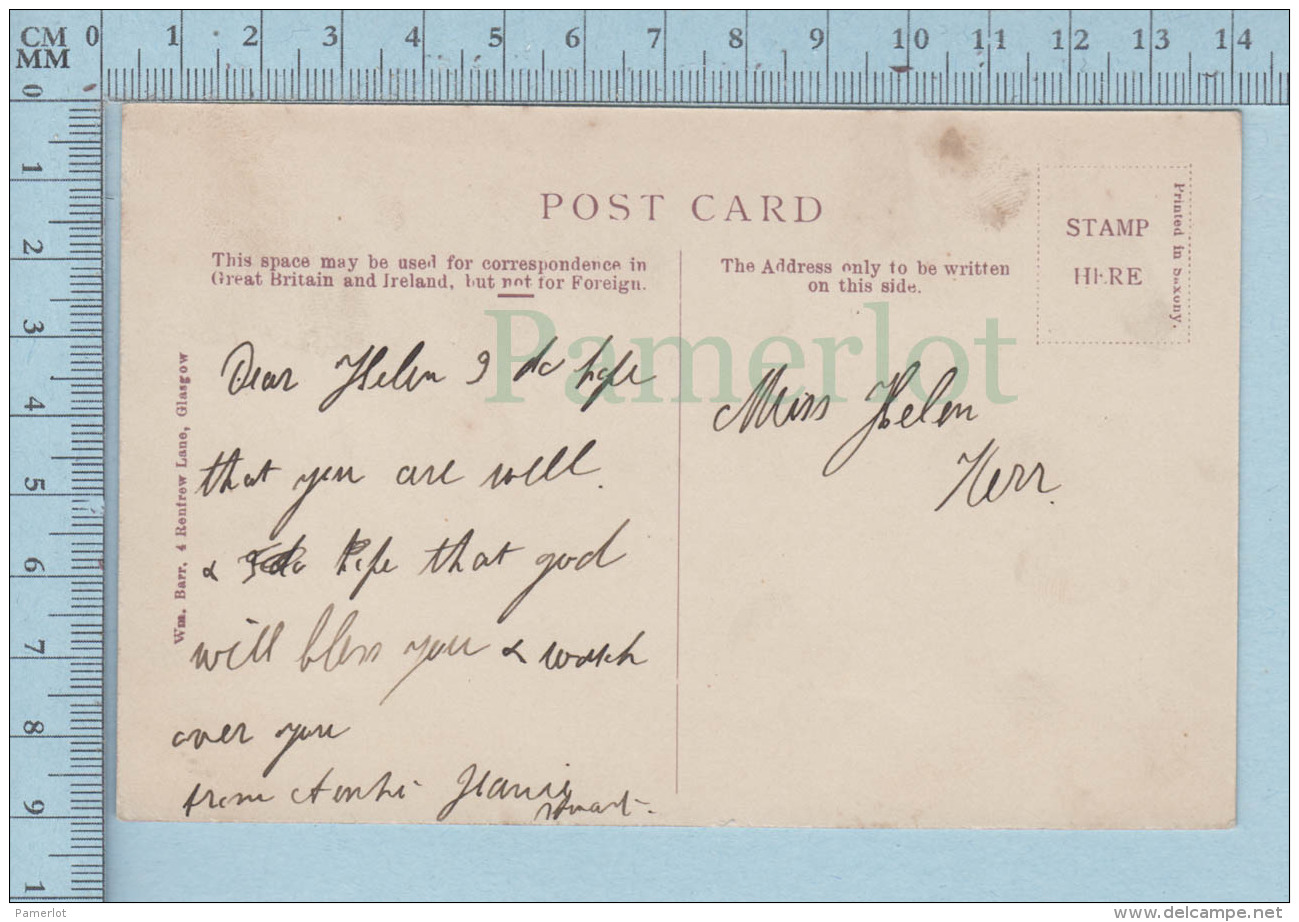 CM 0 1 2 3 4 5 6 7 8 9 10 11 12 13 14
MM
0
1
2
3
4
5
6
7
8
9
1
POST CARD
This space may be used for correspondence in
Great Britain and Ireland, but not for Foreign.
The Address only to be written
on this side.
STAMP
HERE
Printed in Saxony.
Wm. Barr, 4 Renfrew Lane, Glasgow
Pamerlot
Dear Helen I do hope
that you are well.
& hope that god
will bless you & watch
over you
from Auntie Jeanie
Stuart.
Miss Helen
Kerr.
Pamerlot
www.delcampe.net